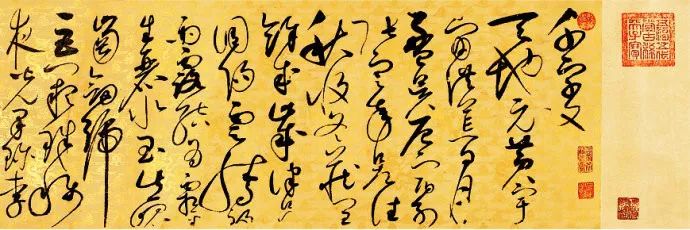 千字文
天地元黃宇
宙洪荒日月
盈昃辰宿列
張寒來暑往
秋收冬藏閏
餘成歲律呂
調陽雲騰致
雨露結為霜
生麗水玉出崑
岡劍號
巨闕珠稱
夜光菓珍李